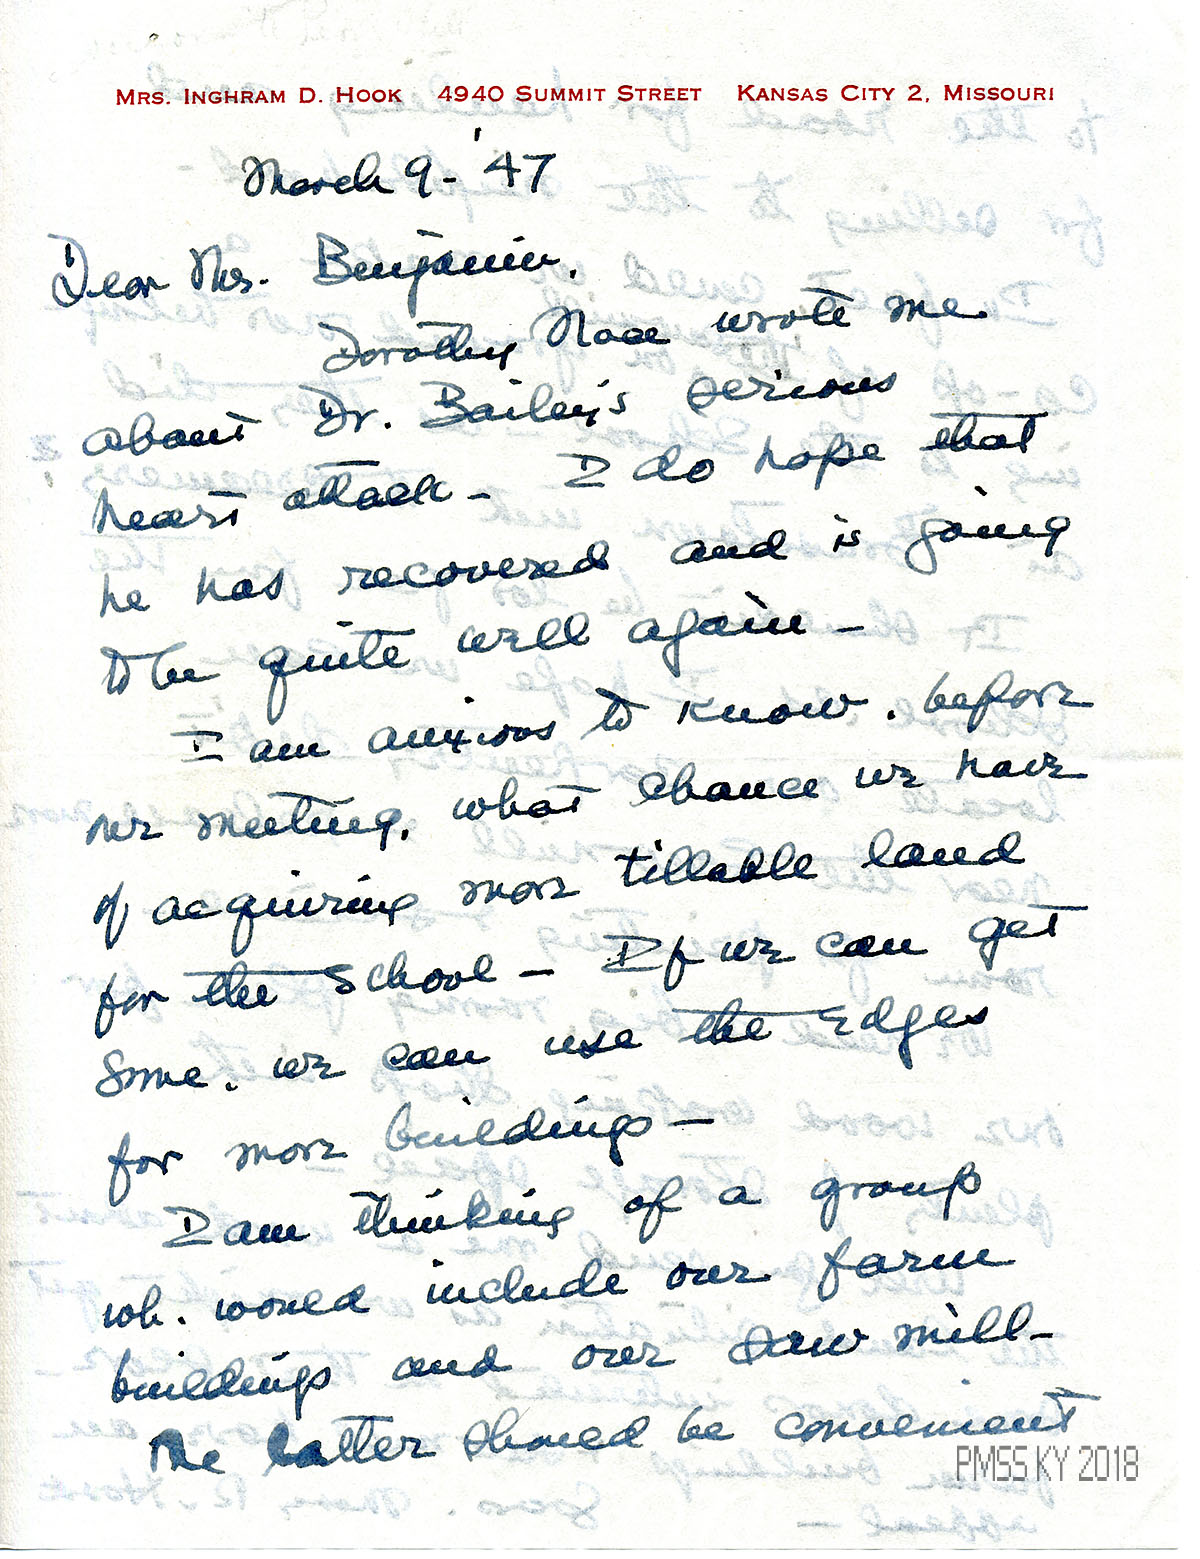 MRS. INGHRAM D. HOOK 4940 SUMMIT STREET KANSAS CITY 2, MISSOURI
March 9 - '47
Dear Mr. Benjamin,
Dorothy Nace wrote me
about Dr. Bailey's serious
heart attack - I do hope that
he has recovered and is going
to be quite well again -
I am anxious to know, before
our meeting, what chance we have
of acquiring more tillable land
for the School - If we can get
some, we can use the edges
for more buildings -
I am thinking of a group
wh. would include our farm
buildings and our saw mill -
The latter should be convenient
PMSS KY 2018